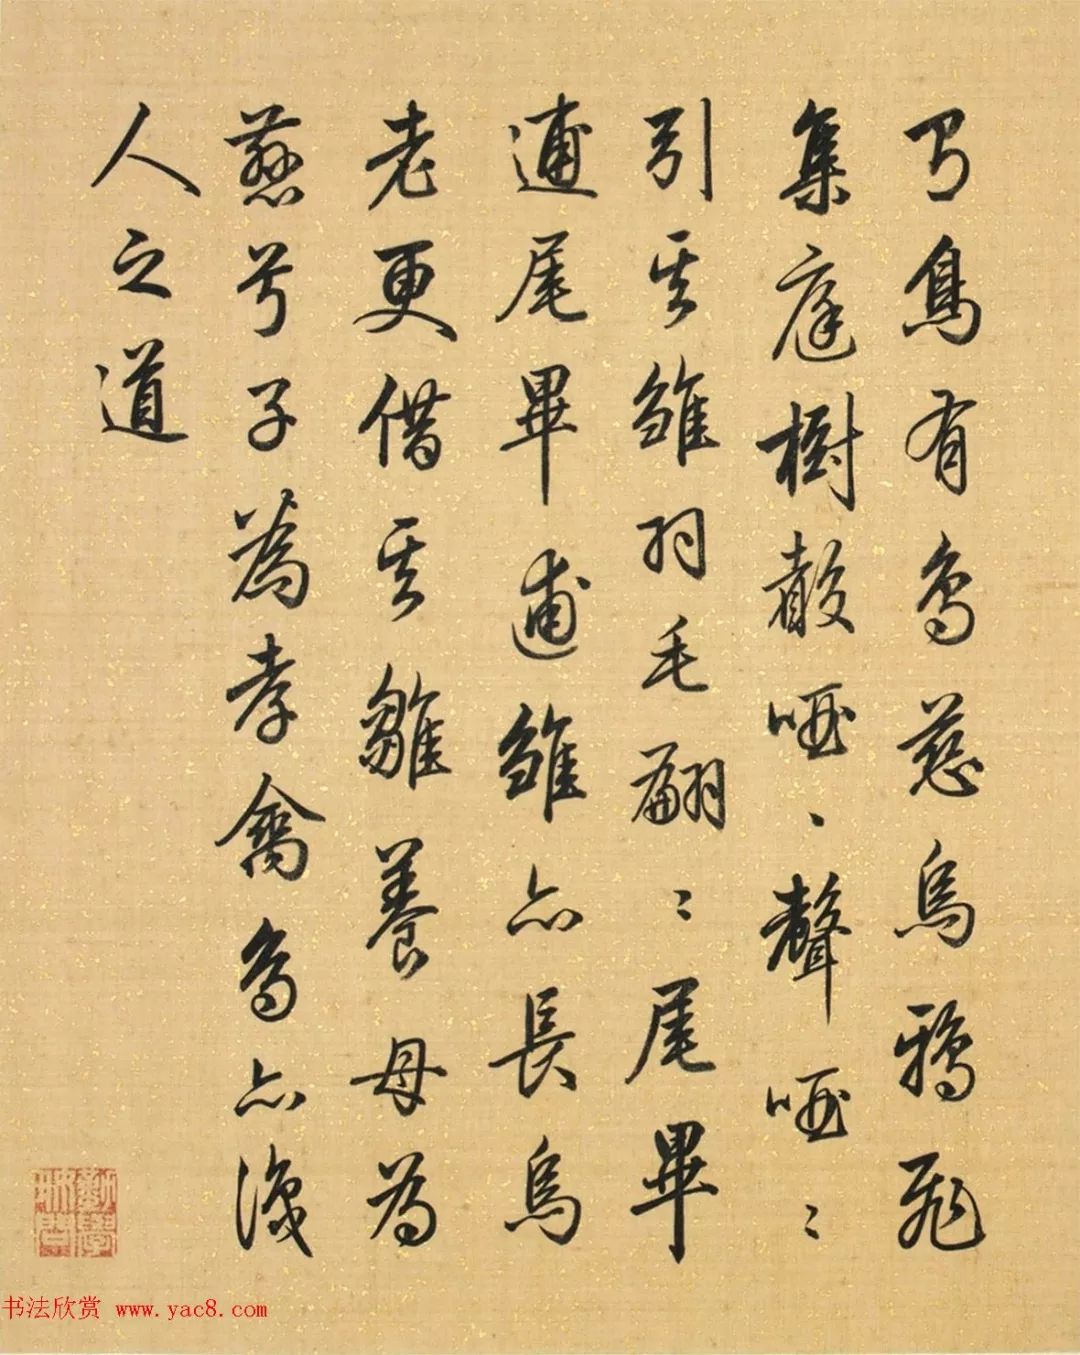 鳥有鳥慈烏鴉飛
集庭樹散啞丶聲啞〻
引其雛羽毛翩〻尾畢
逋尾畢逋雛亦長烏
老更借其雛養母為
慈兮子為孝禽鳥亦識
人之道
书法欣赏 www.yac8.com